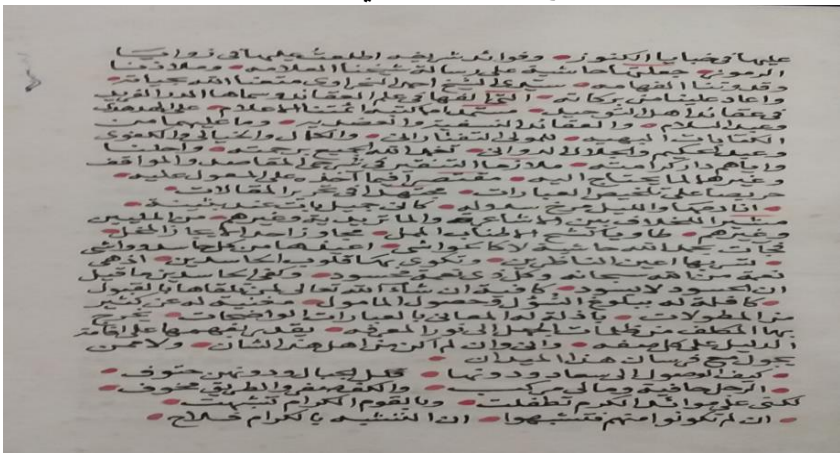 عليها في خبايا الكنوز وفوائد شريفه اطلعت عليها في زوايا
الرموز جعلتها حاشية على رسالة شيخنا العلامه وملاذنا
وقدوتنا الفهامه سيدي الشيخ احمد النحراوي متعنا الله بحياته
واعاد علينا من بركاته التي الفها في علم العقائد وسماها الدر الفريد
في عقائد اهل التوحيد مستمدا من كلام ائمتنا الاعلام على الهدهدي
وعبد السلام والعقائد النسفية والعضديه وما عليهما من
الكتابات البهيه للمولى التفتازاني والكمال والخيالي والكفوي
وعبد الحكيم والجلال الدواني تغمد الله الجميع برحمته واحلنا
واياهم دار كرامته ملازما التنقير في شرحي المقاصد والمواقف
وغيرهما لما يحتاج اليه مقتصرا فيما آخذه على المعول عليه
حريصا على تلخيص العبارات مجتهدا في تحرير المقالات
اناد فيها والليل مرخ سدوله كاني جميل بات عند بثينة
مشيرا للخلاف بين الاشاعرة والماتريدية وغيرهم من المليين
وغيرهم طاويا كشح الاطناب الممل تجاوزا سد الايجاز المخل
فجاءت بحمد الله حاشية لا كالحواشي اعيذها من كل حاسد وواشي
تسر بها اعين الناظرين وتكوى بها قلوب الحاسدين اذ هي
نعمة من الله سبحانه وكل ذي نعمة محسود وكفى الحاسدين ما قيل
ان الحسود لا يسود كافلة ان شاء الله تعالى لمن تلقاها بالقبول
كافلة له ببلوغ السؤل وحصول المامول مغنية له عن كثير
من المطولات باذلة له المعاني بالعبارات الواضحات يخرج
بها المكلف من ظلمات الجهل الى نور المعرفه يقتدر بفهمها على اقامة
الدليل على كل صفه واني وان لم اكن من اهل هذا الشان ولا ممن
يجول مع فرسان هذا الميدان
كيف الوصول الى سعاد ودونها قلل الجبال ودونهن حتوف
الرجل حافية ومالي مركب والكف صفر والطريق مخوف
لكني على موائد الكرم تطفلت وبالقوم الكرام تشبهت
ان لم تكونوا منهم فتشبهوا ان التشبه بالكرام فلاح